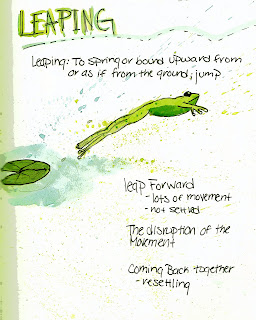 LEAPING
Leaping: To spring or bound upward from
or as if from the ground; jump
leap Forward
- lots of movement
- not settled
The disruption of the
Movement
Coming Back together
- resettling